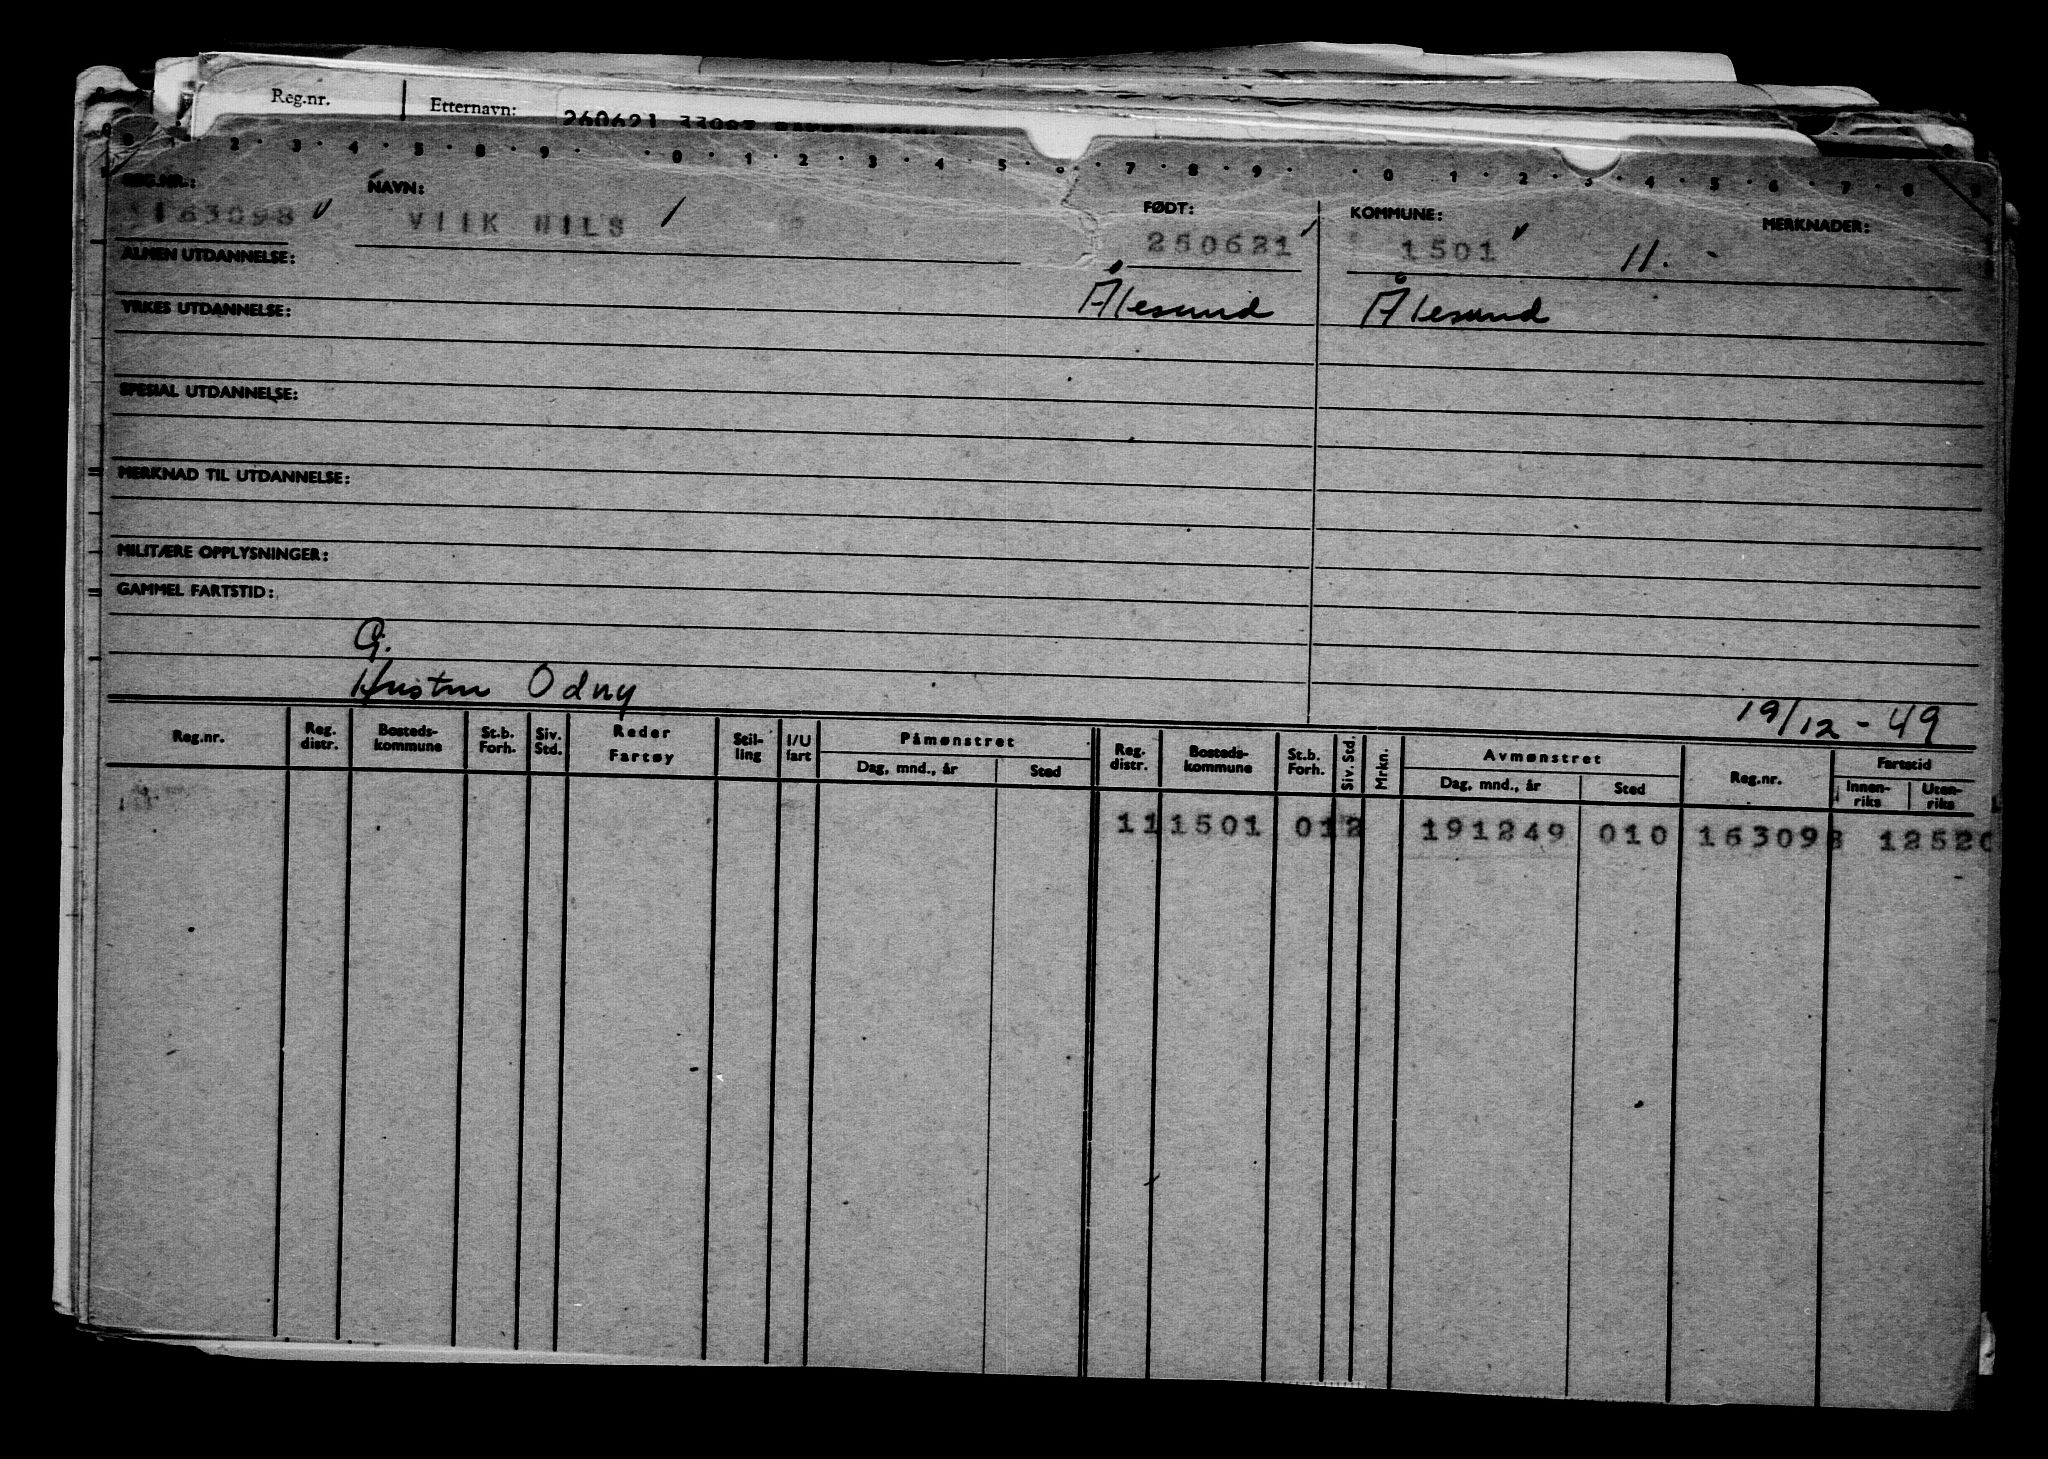 Reg.nr. Etternavn: 260621 33097
2 · 3 · 4 · 5 · 8 · 9 · · 0 · 1 · 2 · 3 · 4 · 5 · 6 · 7 · 8 · 9 · · 0 · 1 · 2 · 3 · 4 · 5 · 6 · 7 · 8 · 9
REG.NR.: NAVN: FØDT: KOMMUNE: MERKNADER:
163098 VIIK NILS 250621 1501 11.-
ALMEN UTDANNELSE:
Ålesund Ålesund
YRKES UTDANNELSE:
SPESIAL UTDANNELSE:
MERKNAD TIL UTDANNELSE:
MILITÆRE OPPLYSNINGER:
GAMMEL FARTSTID:
G.
Hustru Odny
19/12-49
Reg.nr. Reg. distr. Bosteds-kommune St.b. Forh. Siv. Std. Reder Fartøy Stil-ling I/U fart Påmønstret Dag, mnd., år Sted Reg. distr. Bosteds-kommune St.b. Forh. Siv. Std. Mrkn. Avmønstret Dag, mnd., år Sted Reg.nr. Fartstid Innen-riks Uten-riks
11 1501 012 191249 010 163098 12520